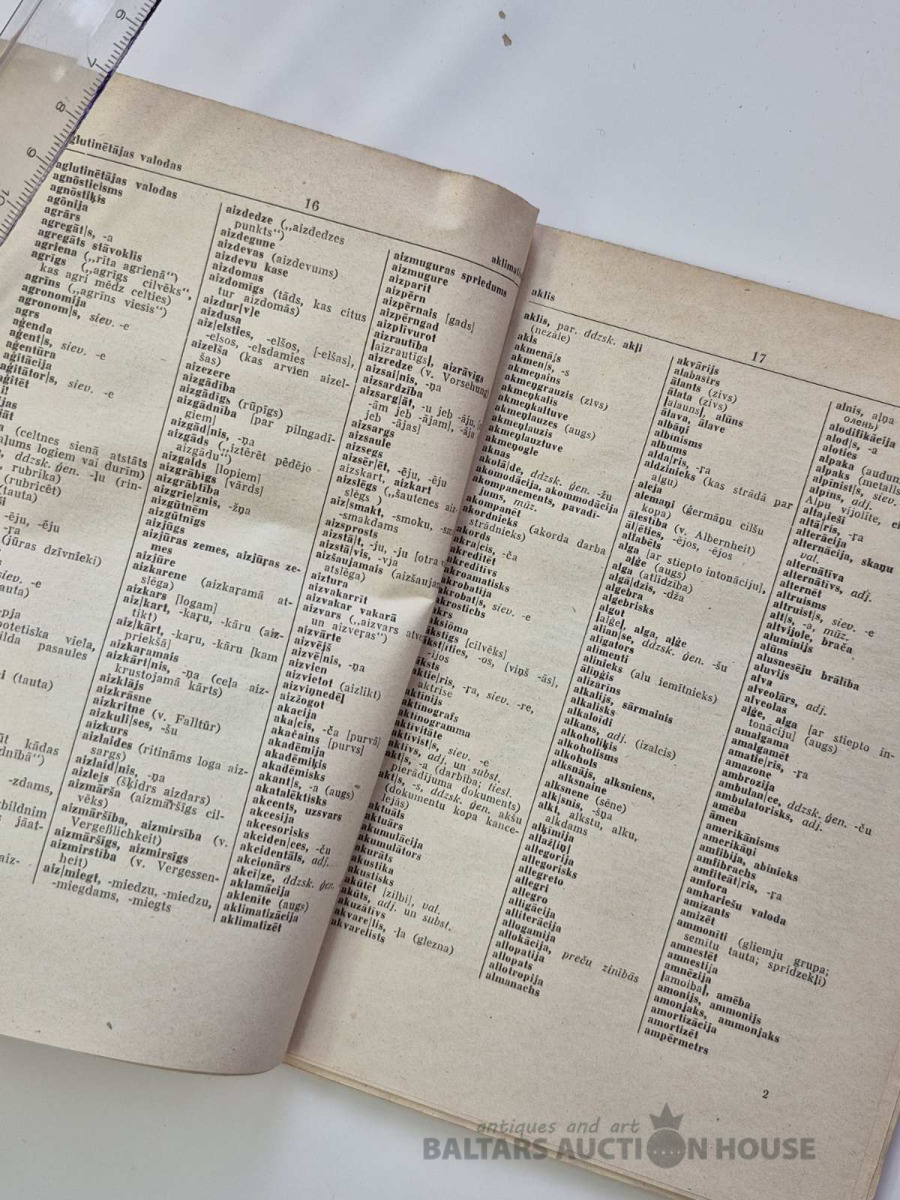 aglutinētājas valodas
16
aklimati
aglutinētājas valodas
agnōsticisms
agnōstiķis
agōnija
agrārs
agregāt|s, -a
agregāts stāvoklis
agriena („rīta agrienā“)
agrīgs („agrīgs cilvēks“,
kas agri mēdz celties)
agrīns („agrīns viesis“)
agronomija
agronom|s, siev. -e
agrs
aģenda
aģent|s, siev. -e
aģentūra
aģitācija
aģitātor|s, siev. -e
aģitēt
(celtnes sienā atstāts
logiem vai durīm)
ddzsk. ģen. -ļu (rin-
rubrika)
(rubricēt)
(tauta)
-ēju, -ēju
-ra
(jūras dzīvnieki)
siev. -e
(tauta)
pasaules
(tauta)
kādas
-zdams,
aizdedze („aizdedzes
punkts“)
aizdegune
aizdevas (aizdevums)
aizdevu kase
aizdomas
aizdomīgs (tāds, kas citus
tur aizdomās)
aizdur|v|e
aizdusa
aiz|elsties, -elšos, [-elšas],
-elsos, -elsdamies
aizelša (kas arvien aizel-
šas)
aizezere
aizgādība
aizgādīgs (rūpīgs)
aizgādnība [par pilngadī-
giem]
aizgād|nis, -ņa
aizgāds („iztērēt pēdējo
aizgādu“)
aizgalds [lopiem]
aizgrābīgs [vārds]
aizgrābtība
aizgriez|nis, -žņa
aizgūtnēm
aizgūtnīgs
aizjūgs
aizjūras zemes, aizjūras ze-
mes
aizjūre
aizkarene (aizkaramā at-
slēga)
aizkars [logam]
aiz|kart, -kaŗu, -kāru (aiz-
tikt)
aiz|kārt, -kaŗu, -kāru [kam
priekšā]
aizkarannis
aizkārt|nis, -ņa (ceļa aiz-
krustojamā kārts)
aizklājs
aizkrāsne
aizkritne (v. Falltür)
aizkuli|ses, -šu
aizkurs
aizlaides (ritināms loga aiz-
sargs)
aizlaid|nis, -ņa
aizlejs (šķidrs aizdars)
aizmārša (aizmāršīgs cil-
vēks)
aizmāršība, aizmirsība (v.
Vergeßlichkeit)
aizmāršīgs, aizmirsīgs
aizmirstība (v. Vergessen-
heit)
aiz|miegt, -miedzu, -miedzu,
-miegdams, -miegts
aizmuguras spriedums
aizmugure
aizparīt
aizpērn
aizpērnais [gads]
aizpērngad
aizplīvurot
aizrautība
[aizrautīgs], aizrāvīgs
aizredze (v. Vorsehung)
aizsai|nis, -ņa
aizsardzība
aizsarg|āt, -u jeb -āju,
-ām jeb -ājam], -āju
jeb -ājas]
aizsargs
aizsaule
aizsegs
aizsēr|ēt, -ēju, -ēju
aizskart, aizkart
aizslēgs („šautenes aiz-
slēgs)
aiz|smakt, -smoku,
-smakdams
aizsprosts
aizstā|t, -ju, -ju [otra
aizstā|vis, -vja
aizšaujamais (aizšaujam
atslēga)
aiztura
aizvakarrīt
aizvakar vakarā
aizvars („aizvars
un aizveras“)
aizvārte
aizvējš
aizvē|nis, -ņa
aizvien
aizvietot (aizlikt)
aizviņnedēļ
aizžogot
akacija
aka|cis, -ča [purvā]
akačains [purvs]
akadēmija
akadēmiķis
akadēmisks
akant|s, -a (augs)
akatalektisks
akcents, uzsvars
akcesija
akcesorisks
akciden|ces, -ču
akcidentāls, adj.
akcionārs
akci|ze, ddzsk. ģen.
aklamācija
aklenīte (augs)
aklimatizācija
aklimatizēt
aklis
17
aklis, par. ddzsk. akļi
(nezāle)
akls
akmenājs
akmen|s, -s
akmeņains
akmeņgrauzis (zivs)
akmeņkalis
akmeņkaltuve
akmeņlauzes (augs)
akmeņlauzis
akmeņlauztuve
akmeņogle
aknas
akolā|de, ddzsk. ģen. -žu
akomodācija, akommodācija
akompanements, pavadī-
jums, mūz.
akompanēt
akordnieks (akorda darba
strādnieks)
akords
akra|cis, -ča
akreditēt
akreditīvs
akroamatisks
akrobatika
akrobat|s, siev. -e
akrostichs
aksiōma
akstīgs [cilvēks]
-ties, -os, [viņš -ās],
-ijos
aksts
aktie|ris, -ra, siev. -re,
aktrise
aktīnijs
aktinografs
aktinogramma
aktivitāte
aktīvist|s, siev. -e
aktīvs, adj. un subst.
akt|s, -a (darbība; tiesl.
pierādījuma dokuments)
akt|s, -s, ddzsk. ģen. akšu
(dokumentu kopa kance-
lejās)
aktuāls
aktuārs
akumulācija
akumulātors
akurāts
akustika
akustisks
akūtēt [zilbi], val.
akūts, adj. un subst.
akuzātīvs
akvare|lis, -ļa (glezna)
akvarelists
akvārijs
alabastrs
ālants (zivs)
ālata (zivs)
[alauns], alūns
ālava, ālave
albāņi
albinisms
albums
alda|ris, -ŗa
aldzinieks (kas strādā par
algu)
aleja
alemaņi (ģermāņu cilšu
kopa)
ālestība (v. Albernheit)
āl|ēties, -ējos, -ējos
allabēts
alga [ar stiepto intonāciju],
aļģe (augs)
alga (atlīdzība)
algebra
algebrisks
algā|dzis, -dža
algot
[aļģe], alga, aļģe
alian|se, ddzsk. ģen. -šu
aligators
alimenti
alinieks (alu iemītnieks)
āliņģis
alizarīns
alkalijs, sārmainis
alkalisks
alkaloīdi
alkans, adj. (izalcis)
alkoholiķis
alkoholisms
alkohols
alksnājs, alksniens,
alksnaine
alksnene (sēne)
alk|snis, -šņa
alkt, alkstu, alku,
alkdams
alķīmija
allaž|iņ|
allegorija
allegorisks
allegreto
allegri
allegro
alligācija
alliterācija
allogamija
allokācija, preču zinībās
allopatija
allopats
allotropija
almanachs
alnis, aļņa
олень)
alodifikācija
alod|s, -a
aloties
alpaka (audum
alpaks (metalls
alpīnist|s, siev.
alpīns, adj.
Alpu vijolīte,
alta|ļeši
altā|ris, -ŗa
alterācija,
alternācija, skaņu
val.
alternātīva
alternātīvs, adj.
alternēt
altruisms
altruist|s, siev. -e
alt|s, -a, mūz.
altvijole, brača
aluminijs
alūns
alusnesēju brālība
aluvijs
alva
alveolārs, adj.
alveolas
aļģe, alga [ar stiepto in-
tonāciju] (augs)
amalgama
amalgamēt
amatie|ris, -ŗa
amazone
ambrozija
ambulan|ce, ddzsk. ģen. -ču
ambulatorisks, adj.
amēba
āmen
amerikānisms
amerikāņi
amfibija, abinieks
amfibrachs
amfiteāt|ris, -ŗa
amfora
amhariešu valoda
amizants
amizēt
ammonīti (gliemju grupa;
semītu tauta; spridzekļi)
amnestēt
amnestija
amnēzija
[amoiba], amēba
amonijs, ammonijs
amonjaks, ammonjaks
amortizācija
amortizēt
ampērmetrs
2
antiques and art
BALTARS AUCTION HOUSE